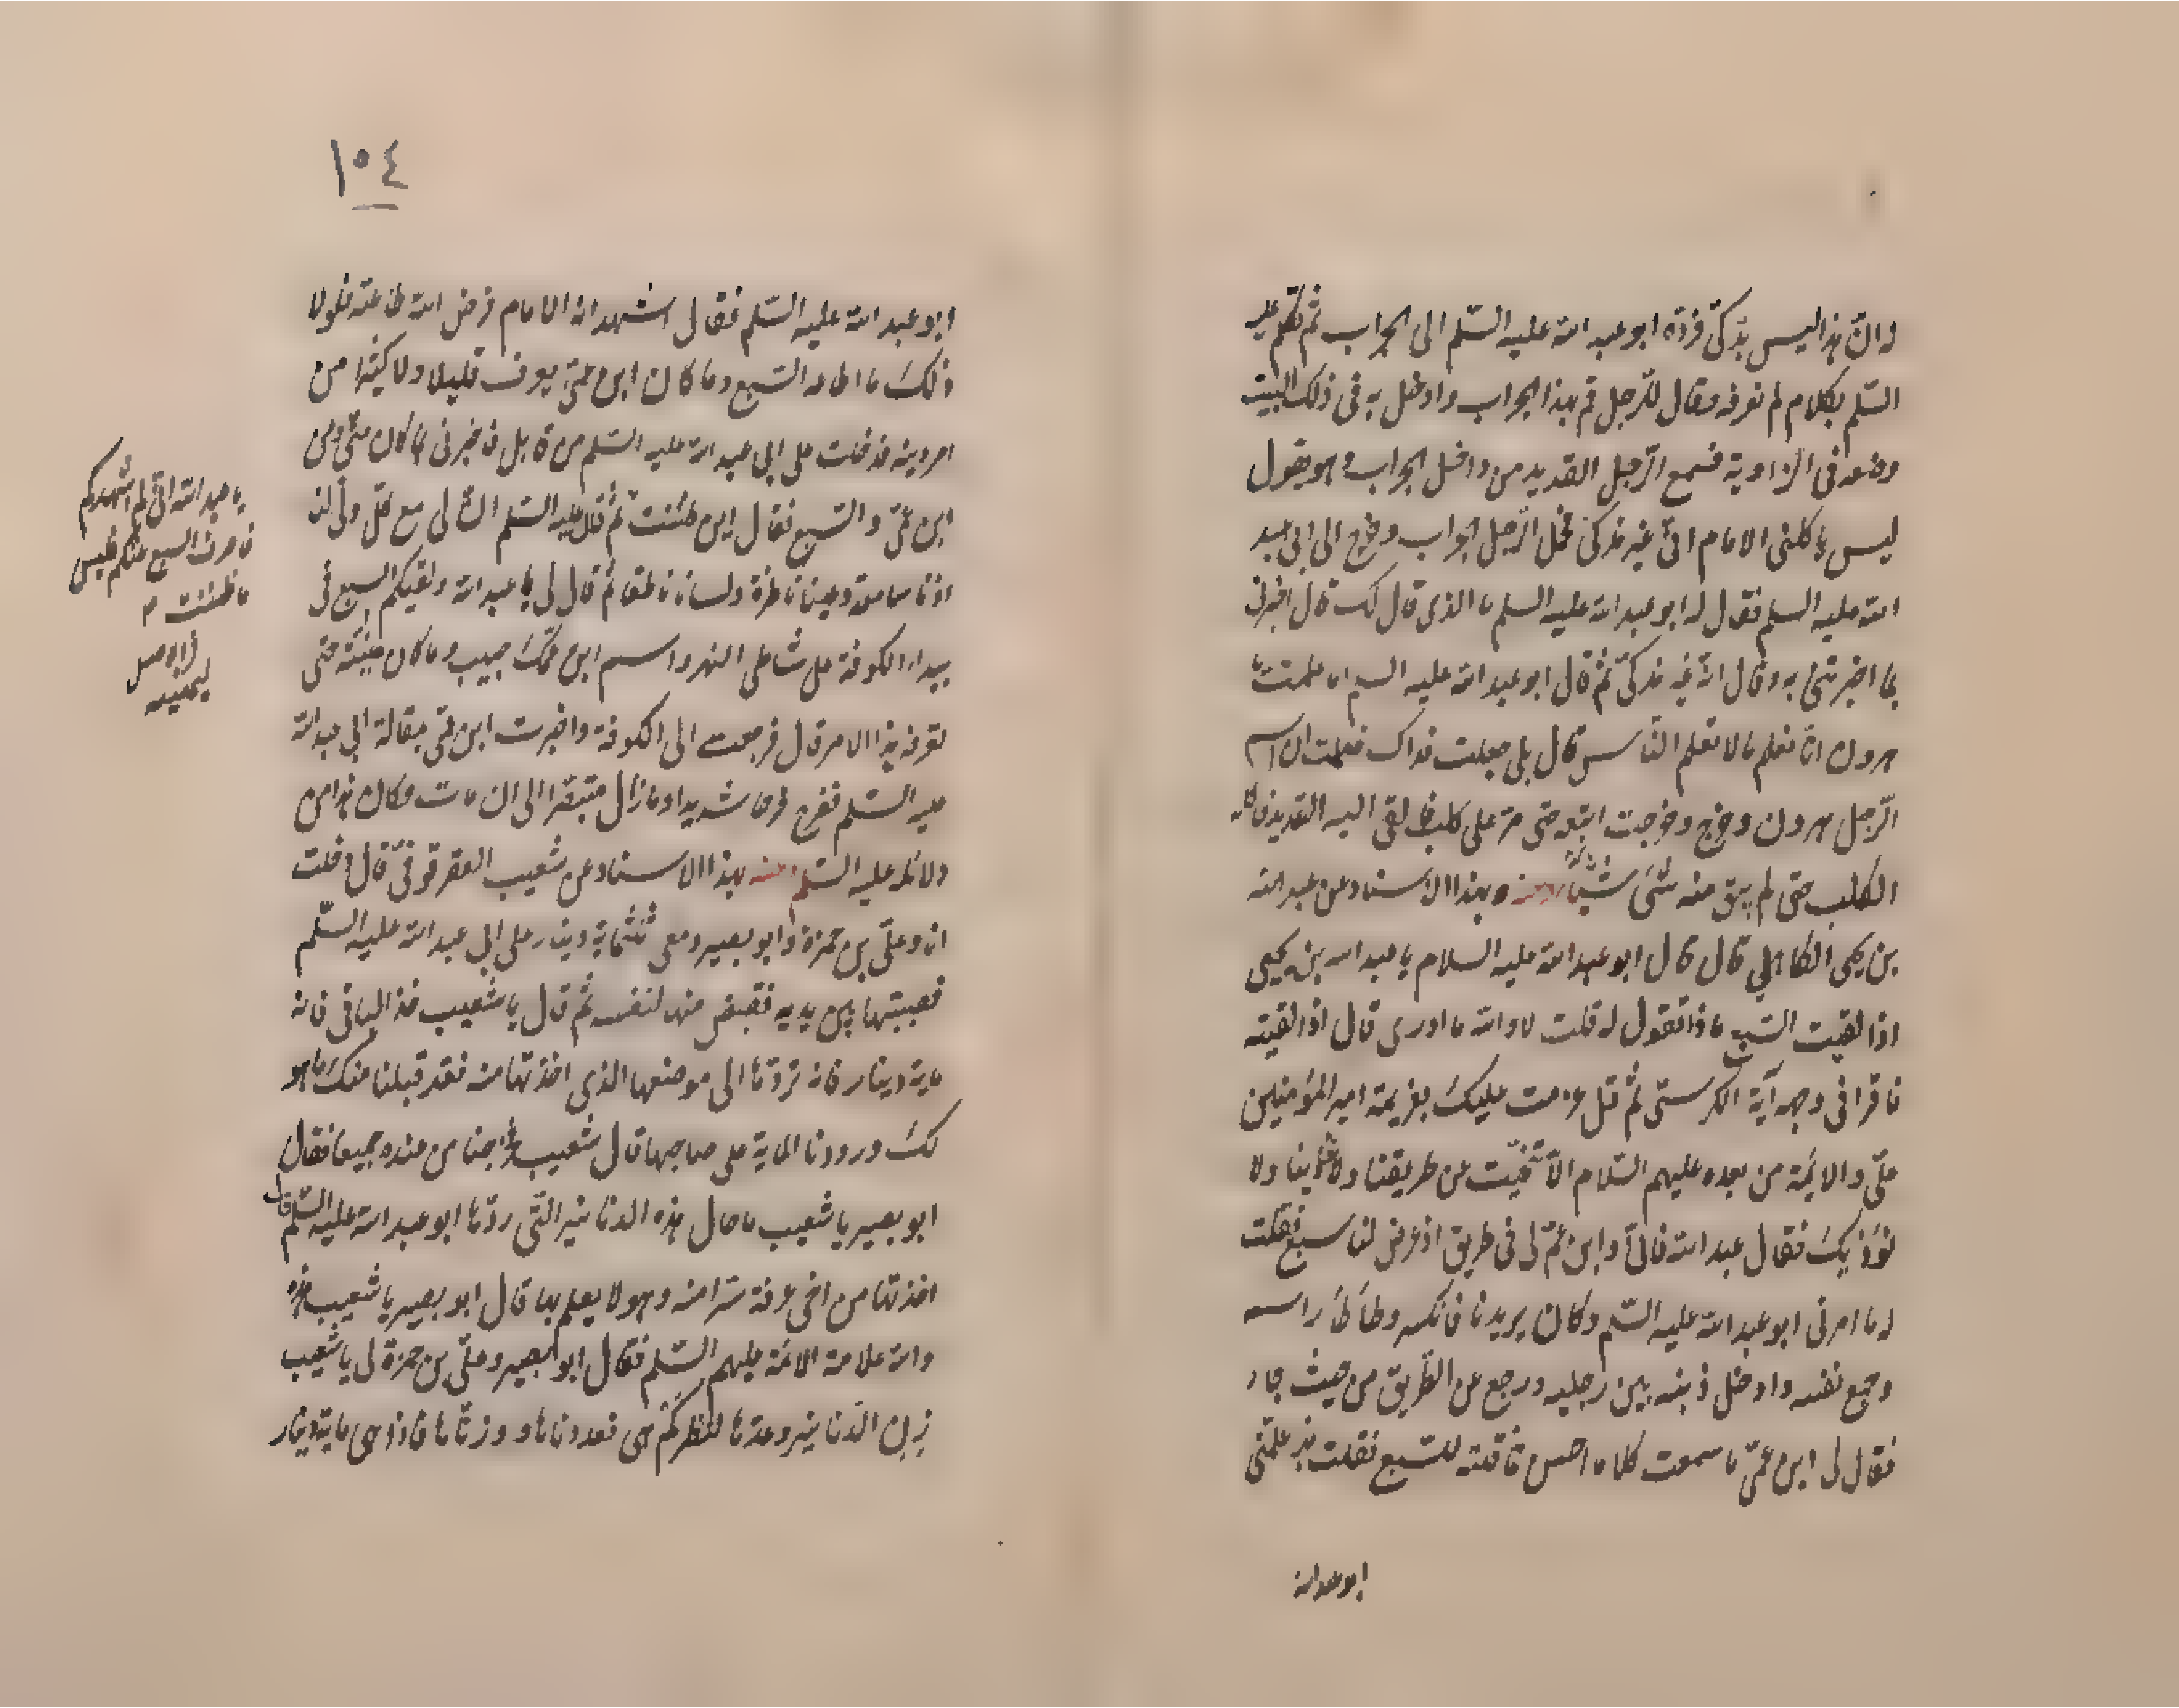 وان هذا ليس بذكي فرده ابو عبد الله عليه السلم الى الجراب ثم تكلم عليه
السلم بكلام لم نعرفه وقال للرجل قم بهذا الجراب وادخل به في ذلك البيت
وضعه في الزاوية فسمع الرجل القديد من داخل الجراب وهو يقول
ليس ياكلني الامام اني غير مذكى فحمل الرجل الجراب وخرج الى ابي عبد
الله عليه السلم فقال له ابو عبد الله عليه السلم ما الذي قال لك قال اخبرني
بما اخبرتني به وقال انه غير مذكى ثم قال ابو عبد الله عليه السلم اما علمت يا
هرون انا نعلم ما لا تعلم الناس قال بلى جعلت فداك فعلمت ان اسم
الرجل هرون وخرج وخرجت اتبعه حتى مر على كلب فالقى اليه القديد فاكله
الكلب حتى لم يبق منه شئ شيئا وعنه وبهذا الاسناد عن عبد الله
بن يحيى الكاهلي قال قال ابو عبد الله عليه السلام يا عبد الله بن يحيى
اذا لقيت السبع ماذا تقول له قلت لا والله ما ادري قال اذا لقيته
فاقرا في وجهه آية الكرسي ثم قل عزمت عليك بعزيمة امير المؤمنين
علي والائمة من بعده عليهم السلام الا تنحيت عن طريقنا ولا تؤذينا ولا
نؤذيك فقال عبد الله فاني وابن عم لي في طريق اذ عرض لنا سبع فقلت
له ما امرني ابو عبد الله عليه السلم وكان يريدنا فانكسر وطأطأ راسه
وجمع نفسه وادخل ذنبه بين رجليه ورجع عن الطريق من حيث جاء
فقال لي ابن عمي ما سمعت كلاما احسن ما قلته للسبع فقلت هذا علمني
ابو عبد الله
١٠٤
ابو عبد الله عليه السلم فقال اشهد انه الامام فرض الله طاعته فلولا
ذلك ما اطاعه السبع وما كان ابن عمي يعرف قليلا ولا كثيرا من
امر دينه فدخلت على ابي عبد الله عليه السلم من قابل فاخبرني بما كان مني ومن
ابن عمي والسبع فقال اين ظننت ثم قال عليه السلم ان لي مع كل ولي لنا
اذنا سامعة وعينا ناظرة ولسانا ناطقا ثم قال لي يا عبد الله ولقيكم السبع في
بيداء الكوفة على شاطى النهر واسم ابن عمك حبيب وما كان ميتته حتى
يعرف هذا الامر قال فرجعت الى الكوفة واخبرت ابن عمي بمقالة ابي عبد الله
عليه السلم ففرح فرحا شديدا وما زال متبصرا الى ان مات فكان هذا من
دلائله عليه السلم وعنه بهذا الاسناد عن شعيب العقرقوفي قال دخلت
انا وعلي بن حمزة وابو بصير ومعي ثلثماية دينار على ابي عبد الله عليه السلم
فصببتها بين يديه فقبض منها لنفسه ثم قال يا شعيب خذ الباقي فانه
ماية دينار فانه تردها الى موضعها الذي اخذتها منه فقد قبلنا منك ما هو
لك ورددنا الماية على صاحبها قال شعيب فخرجنا من عنده جميعا فقال
ابو بصير يا شعيب ما حال هذه الدنانير التي ردها ابو عبد الله عليه السلم قال
اخذتها من اخي عرفة سرا منه وهو لا يعلم بها قال ابو بصير يا شعيب هذه
والله علامة الائمة عليهم السلم فقال ابو بصير وعلي بن حمزة لي يا شعيب
زن الدنانير وعدها لننظر كم هي فعددناها ووزناها فاذا هي ماية دينار
يا عبد الله اني لم اشهدكم
فصرف السبع عنكم فلبئس
ما ظننت